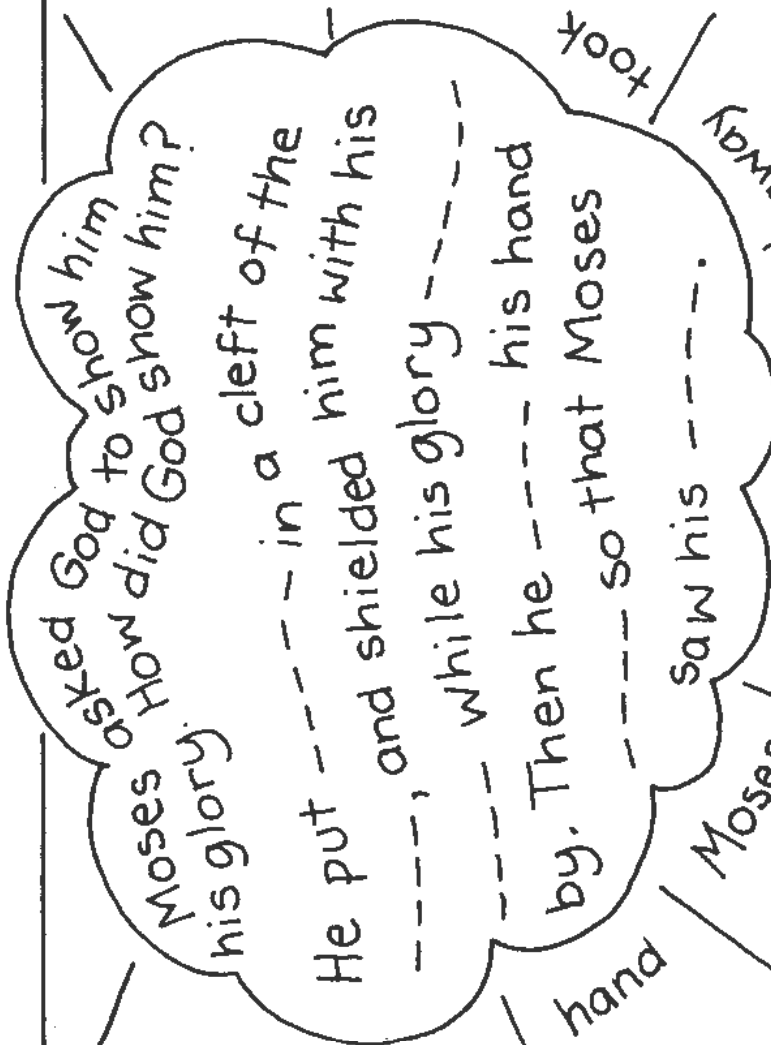 Moses asked God to show him
his glory. How did God show him?
He put _ _ _ _ _ in a cleft of the
_ _ _ _, and shielded him with his
_ _ _ _ while his glory _ _ _ _ _ _
by. Then he _ _ _ _ his hand
_ _ _ _ so that Moses
saw his _ _ _ _.
hand
Moses
took
away